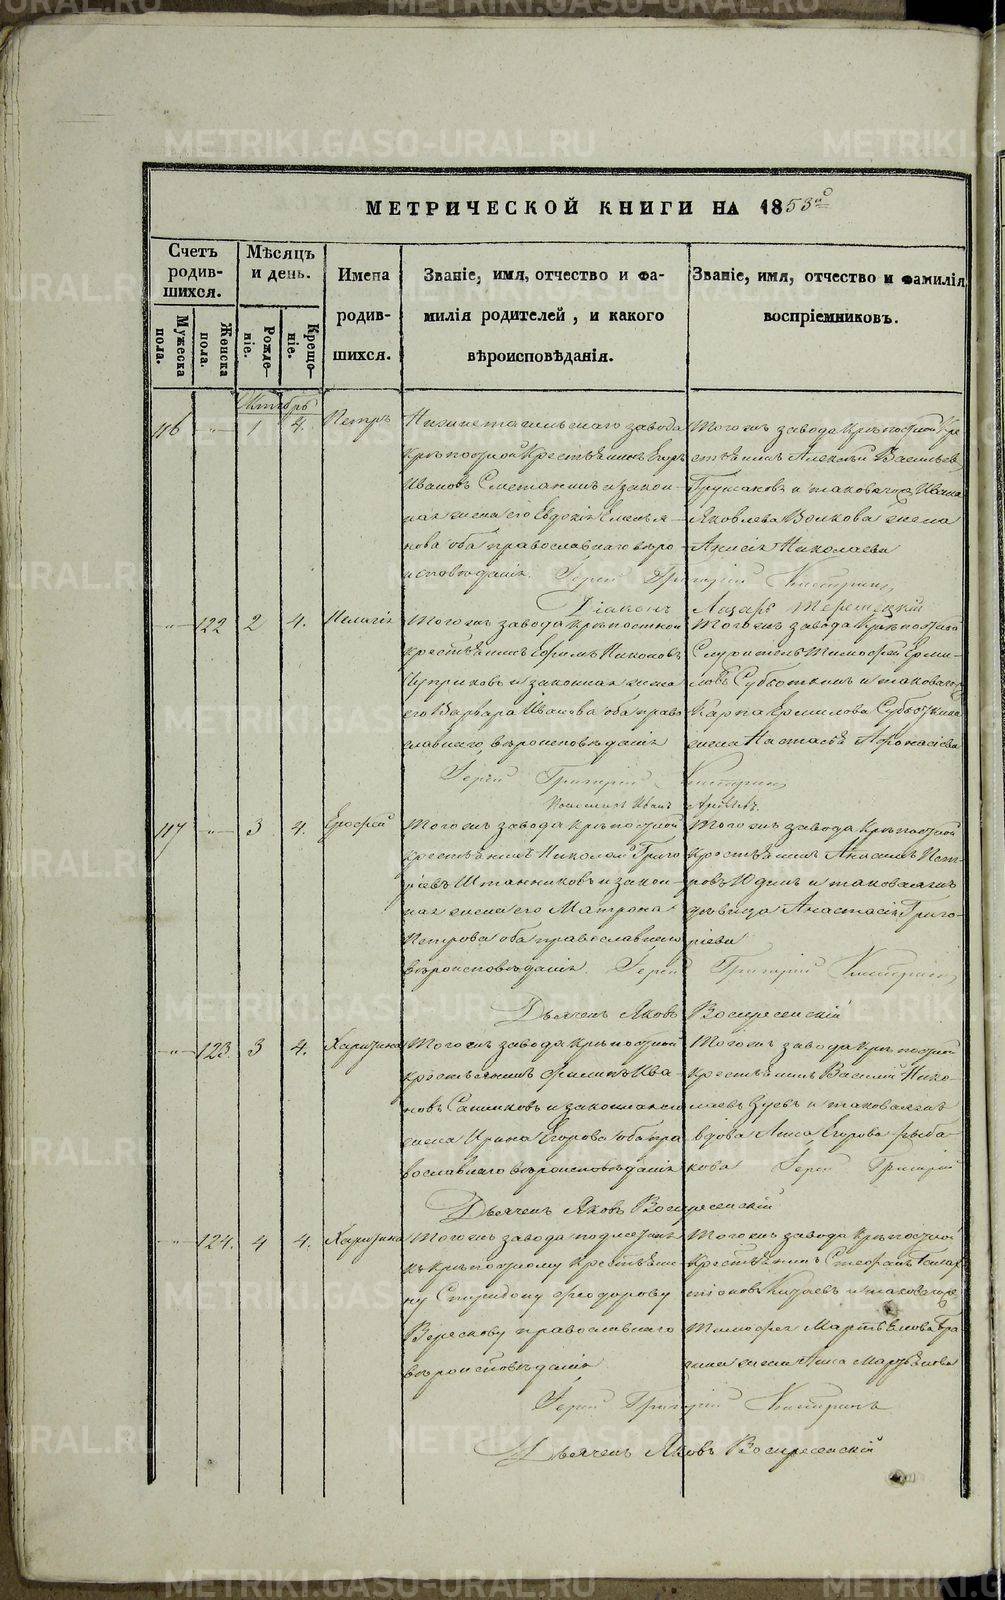 МЕТРИЧЕСКОЙ КНИГИ НА 1853й
Счетъ родив-шихся.
Мужеска пола.
Женска пола.
Мѣсяцъ и день.
Рожде-ніе.
Крещо-ніе.
Имена
родив-
шихся.
Званіе, имя, отчество и фа-
милія родителей, и какого
вѣроисповѣданія.
Званіе, имя, отчество и фамилія
воспріемниковъ.
Октябрь
116 -"- 1 4. Петръ
Нижнетагильскаго завода
крѣпостной крестьянинъ Егоръ
Ивановъ Сметанинъ и закон-
ная жена его Евдокія Емелья-
нова оба православнаго вѣро
исповѣданія.
Тогожъ завода крѣпостной кре
стьянинъ Алексѣй Васильев
и таковагожъ Ивана
Яковлева Волкова жена
Анисія Николаева
Іерей Григорій
Діаконъ Лазарь
-"- 122 2 4. Пелагія
Тогожъ завода крѣпостной
крестьянинъ Ефремъ Никоновъ
Чуприковъ и законная жена
его Варвара Иванова оба право
славнаго вѣроисповѣданія
Тогожъ завода крѣпостной
Тимофей Ерми-
ловъ Субботинъ и таковагожъ
Карпа Ермилова Субботина
жена Настасья Афонасіева
Іерей Григорій
Иван
117 -"- 3 4. Ерофей
Тогожъ завода крѣпостной
крестьянинъ Николай Григо
ріевъ Штанниковъ и закон-
ная жена его Матрона
Петрова оба православнаго
вѣроисповѣданія.
Тогожъ завода крѣпостной
крестьянинъ Анисимъ Пет-
ровъ Юдинъ и таковаяжъ
дѣвица Анастасія Григо-
ріева
Іерей Григорій
Дьячекъ Яковъ Воскресенскій
-"- 123. 3 4. Харитина
Тогожъ завода крѣпостной
крестьянинъ Филипъ Ива-
новъ Санниковъ и законная
жена Ирина Егорова оба пра
вославнаго вѣроисповѣданія
Тогожъ завода крѣпостной
крестьянинъ Василій Нико-
лаевъ Зуевъ и таковаяжъ
вдова Анна Егорова Рыба-
кова
Іерей Григорій
Дьячекъ Яковъ Воскресенскій
-"- 124. 4 4. Харитина
Тогожъ завода подметная
къ крѣпостному крестьяни
ну Спиридону Феодорову
Верескову православнаго
вѣроисповѣданія
Тогожъ завода крѣпостной
крестьянинъ Стефанъ
и таковагожъ
Тимофея Мартьянова
жена Анна Мартьянова
Іерей Григорій
Дьячекъ Яковъ Воскресенскій
METRIKI.GASO-URAL.RU